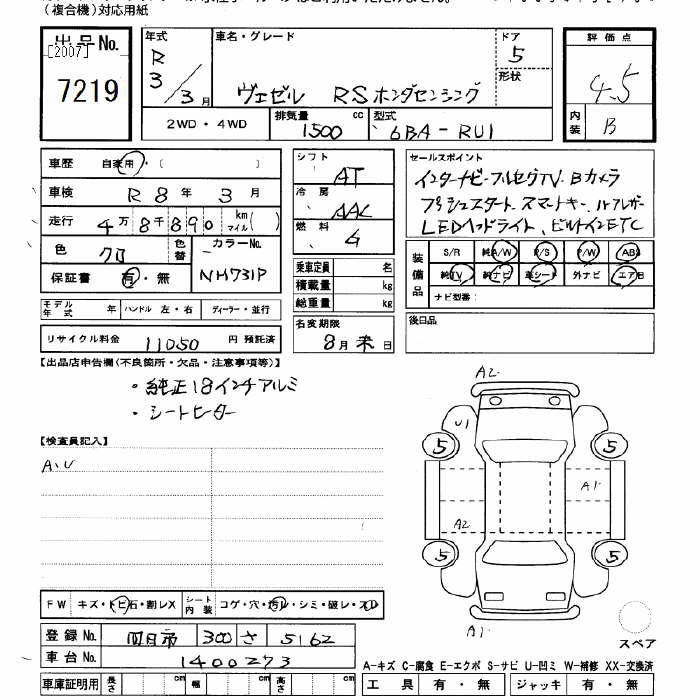 (複合機)対応用紙
出品No.
[2007]
7219
年式
R
3/3月
車名・グレード
ヴェゼル RSホンダセンシング
ドア
5
形状
2WD・4WD
排気量
1500
cc
型式
6BA-RU1
評価点
4.5
内装
B
車歴
自家用・( )
車検
R 8 年 3 月
走行
4万8千890
km
マイル
( )
色
クロ
色替
カラーNo.
NH731P
保証書
有・無
シフト
AT
冷房
AAC
燃料
G
乗車定員 名
積載量 kg
総重量 kg
セールスポイント
インターナビ・フルセグTV・Bカメラ
プッシュスタート、スマートキー、ルーフレザー
LEDヘッドライト、ビルトインETC
装備品
S/R 純A/W P/S P/W ABS
純TV 純ナビ 革シート 外ナビ エアB
ナビ型番:
モデル年式 年
ハンドル 左・右
ディーラー・並行
リサイクル料金 11050 円 預託済
名変期限
8月末日
後日品
【出品店申告欄(不良箇所・欠品・注意事項等)】
・純正18インチアルミ
・シートヒーター
【検査員記入】
A、U
A2
U1
5
5
A1
A2
5
5
A1
スペア
FW キズ・トビ石・割レX
シート内装 コゲ・穴・汚レ・シミ・破レ・スレ
登録No. 四日市 300 さ 5162
車台No. 1400273
A-キズ C-腐食 E-エクボ S-サビ U-凹ミ W-補修 XX-交換済
車庫証明用 長さ cm 幅 cm 高さ cm
工具 有・無 ジャッキ 有・無